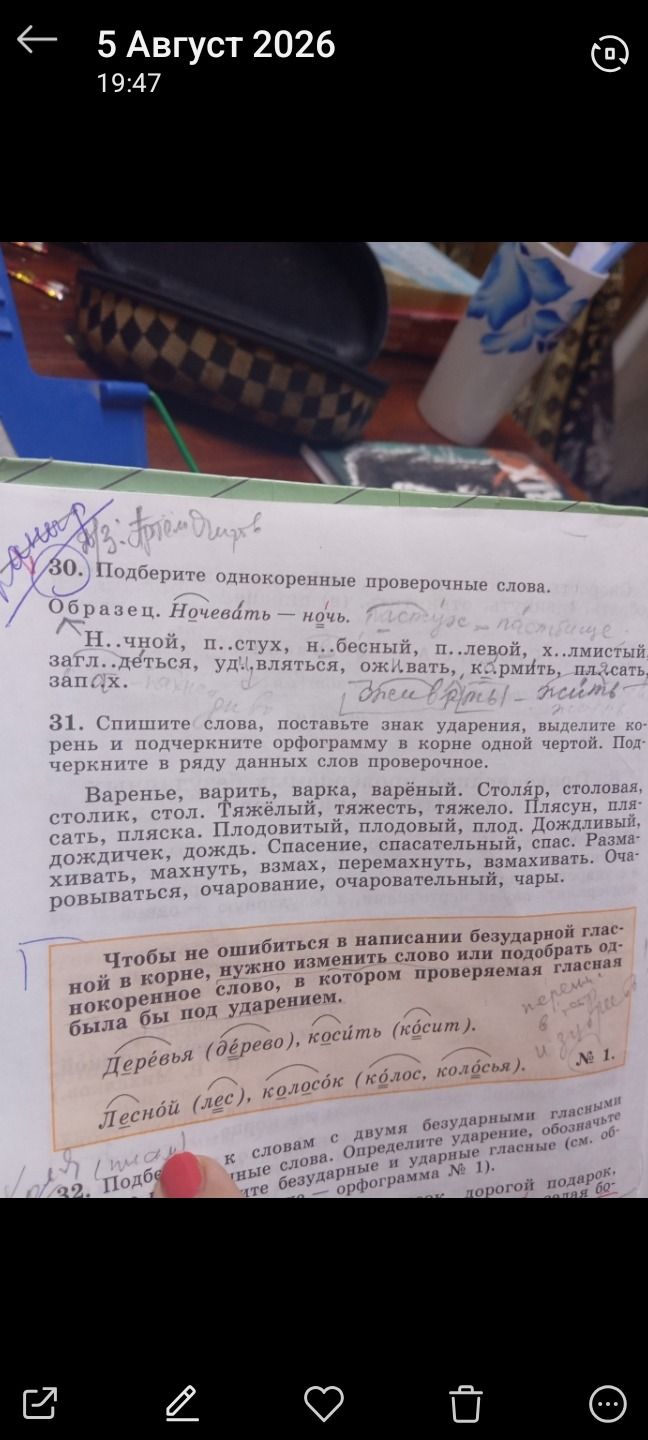 5 Август 2026
19:47
Д/з: Артём
30. Подберите однокоренные проверочные слова.
Образец. Ночева́ть — но́чь. пасту́х – па́стбище
Н..чной, п..стух, н..бесный, п..левой, х..лмистый,
загл..де́ться, уди́вляться, оживать, кормить, плясать,
запах.
жить
31. Спишите слова, поставьте знак ударения, выделите ко-
рень и подчеркните орфограмму в корне одной чертой. Под-
черкните в ряду данных слов проверочное.
Варенье, варить, варка, варёный. Столяр, столовая,
столик, стол. Тяжёлый, тяжесть, тяжело. Плясун, пля-
сать, пляска. Плодовитый, плодовый, плод. Дождливый,
дождичек, дождь. Спасение, спасательный, спас. Разма-
хивать, махнуть, взмах, перемахнуть, взмахивать. Оча-
ровываться, очарование, очаровательный, чары.
Чтобы не ошибиться в написании безударной глас-
ной в корне, нужно изменить слово или подобрать од-
нокоренное слово, в котором проверяемая гласная
была бы под ударением.
Дере́вья (де́рево), коси́ть (ко́сит).
Лесно́й (лес), колосо́к (ко́лос, коло́сья).
№ 1.
32. Подбе к словам с двумя безударными гласными
ные слова. Определите ударение, обозначьте
ите безударные и ударные гласные (см. об-
— орфограмма № 1).
дорогой подарок,
бо-